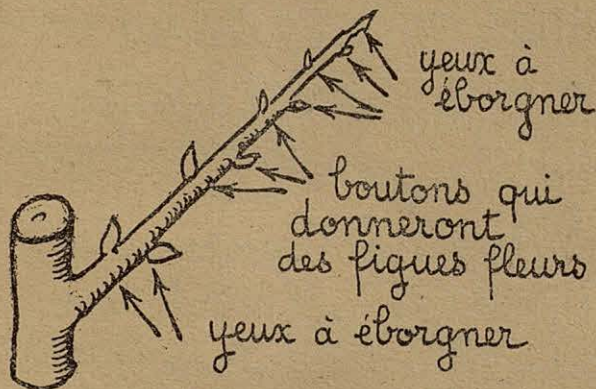 yeux à
éborgner
boutons qui
donneront
des figues fleurs
yeux à éborgner